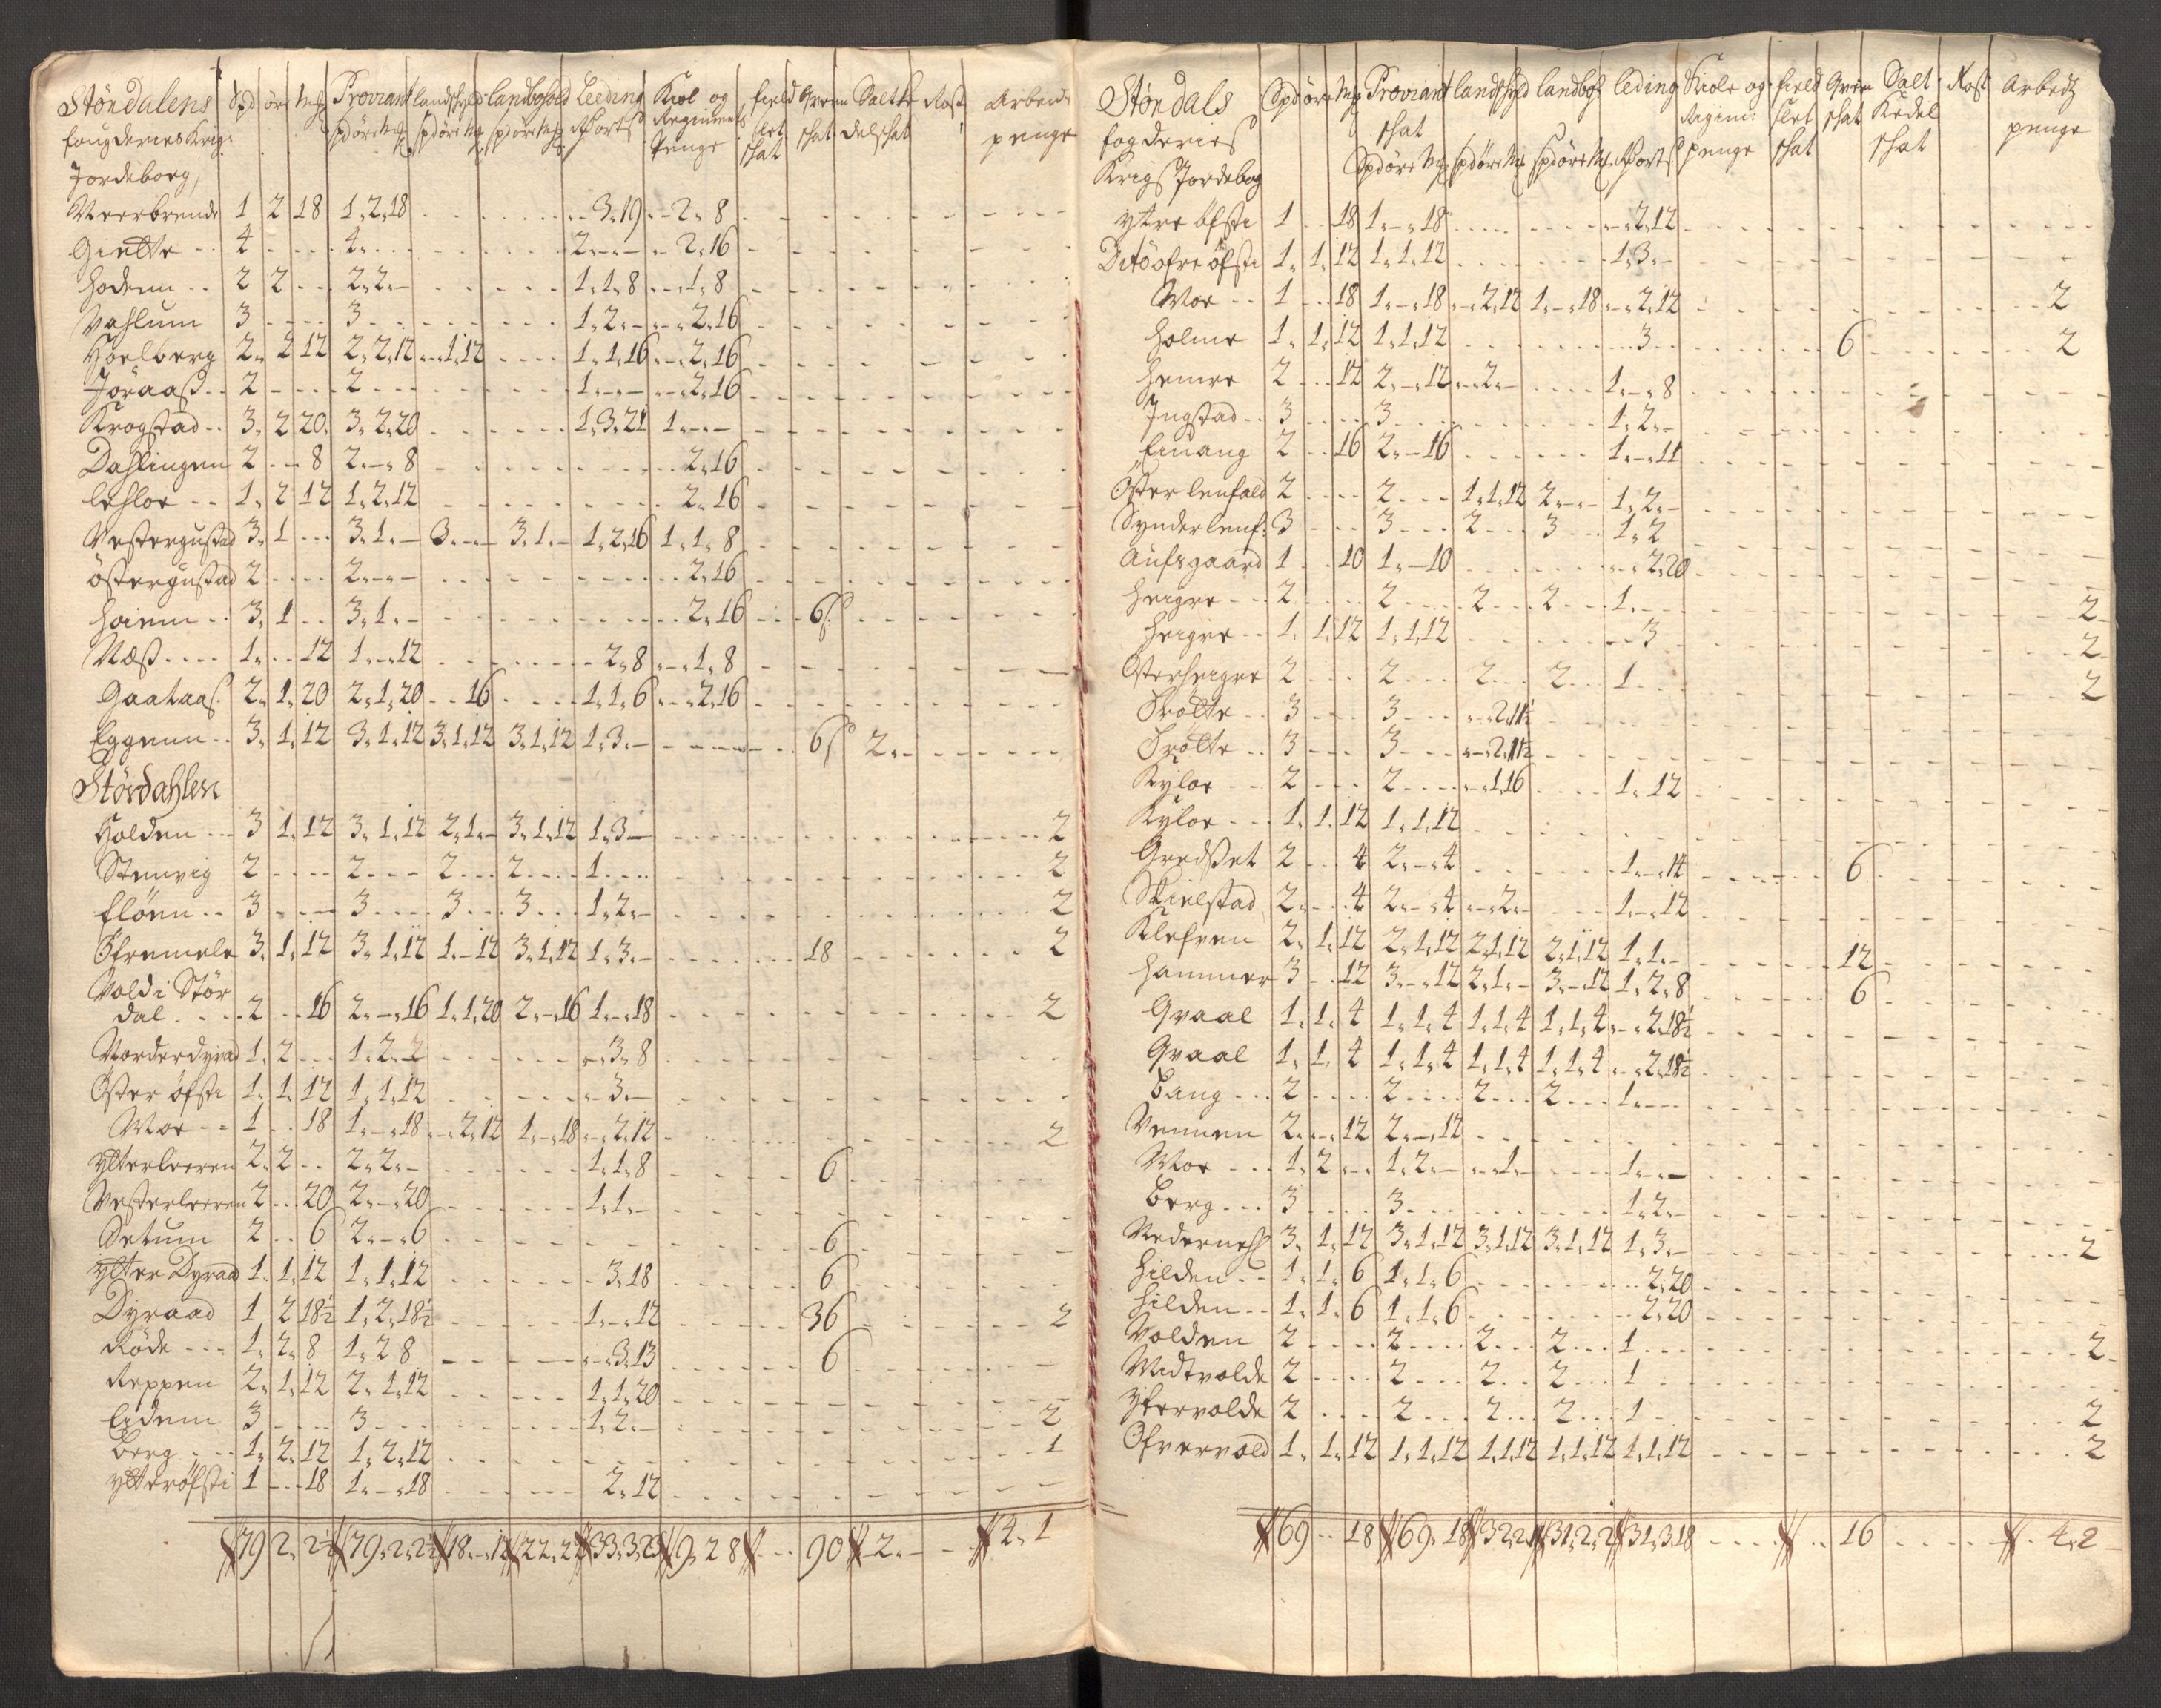 Stördalens Spd öre Mg Proviant landschyld landbohold Leeding Kiøl og field Qvern Saltke Rost Arbeids
fougderies Krigs spd öre Mg spd öre Mg spd öre Mg Regiments slet schat delschat penge
Jordeborg, Penge schat
Meerbrende 1 2 18 1,2,18 - - 3,19 - 2,8
Gielte 4 4 2 - - 2,16
hodem 2 2 2,2,- 1,1,8 - 1,8
Vahlum 3 3 1,2,- - 2,16
Hoelberg 2 2 12 2,2,12 - 1,12 1,1,16 - 2,16
Joraas 2 2 1,-,- - 2,16
Krogstad 3 2 20 3,2,20 1,3,21 1,-,-
Dahlingen 2 - 8 2,-,8 2,16
lehloe 1 2 12 1,2,12 2,16
Vestergustad 3 1 3,1,- 3,-,- 3,1,- 1,2,16 1,1,8
östergustad 2 2,-,- 2,16
hoiem 3 1 3,1,- 2,16 6 ſ
Næss 1 - 12 1,-,12 2,8 - 1,8
Gaataas 2 1 20 2,1,20 - 16 1,1,6 - 2,16
Eggenn 3 1 12 3,1,12 3,1,12 3,1,12 1,3,- 6 ſ 2,-
Stördahlen
Holden 3 1 12 3,1,12 2,1,- 3,1,12 1,3,- 2
Stenvig 2 2 2 2 1 2
flöen 3 3 3 3 1,2,- 2
Öfremele 3 1 12 3,1,12 1,-12 3,1,12 1,3,- 18 2
Vold i Stör
dal 2 - 16 2,-,16 1,1,20 2,-,16 1,-,18 2
Norderdyrad 1 2 1,2,2 - 3,8
Öster öfsti 1 1 12 1,1,12 - 3,-
Moe 1 18 1,-,18 - 2,12 1,-,18 - 2,12 2
Ytterleeren 2 2 2,2,- 1,1,8 6
Vesterleeren 2 20 2,-,20 1,1,-
Setum 2 6 2,-,6 6
Ytter Dyraad 1 1 12 1,1,12 3,18 6
Dyraad 1 2 18½ 1,2,18½ 1,-,12 36 2
Röde 1 2 8 1,2 8 - 3,13 6
Reppen 2 1 12 2,1,12 1,1,20
Eidem 3 3 1,2,- 2
Berg 1 2 12 1,2,12 1
ytteröfsti 1 18 1,-,18 2,12
79 2 2½ 79,2,2½ 18,-,12 22,2 33,3,23 9,2 8 90 2,- 2,1
Stördals Spd öre Mg Proviant landschyld landboh leding Kiole og field Qvern Salt Rost Arbedz
fogderies schat Regim: slet schat Kedel penge
Krigs Jordebog Spd öre Mg spd öre Mg spd öre Mg penge schat schat
ytre öfsti 1 18 1,-,18 - 2,12
Ditö öfre öfsti 1 1 12 1,1,12 1,3,-
Moe 1 18 1,-,18 - 2,12 1,-,18 - 2,12 2
holme 1 1 12 1,1,12 3 6 2
hemre 2 12 2,-,12 - 2,- 1,-,8
Ingstad 3 3 1,2,-
Einang 2 16 2,-16 1,-,11
Öster lenfald 2 2 1,1,12 2,-,- 1,2,-
Synder lenf: 3 3 2 3 1,2
Aufsgaard 1 10 1,-10 - 2,20
heigre 2 2 2 2 1 2
heigre 1 1 12 1,1,12 - 3 2
Österheigre 2 2 2 2 1 2
Trötte 3 3 - 2,1½
Trötte 3 3 - 2,1½
Kyloe 2 2 - 1,16 1,12
Kyloe 1 1 12 1,1,12
Gredset 2 4 2,-,4 1,-,14 6
Skielstad 2 4 2,-,4 - 2,- 1,-,12
Klefven 2 1 12 2,1,12 2,1,12 2,1,12 1,1,- 12
hammer 3 12 3,-,12 2,1,- 3,-,12 1,2,8 6
Qvaal 1 1 4 1,1,4 1,1,4 1,1,4 - 2,18½
Qvaal 1 1 4 1,1,4 1,1,4 1,1,4 - 2,18½
bang 2 2 2 2 1,-
Vennen 2 12 2,-,12
Moe 1 2 1,2,- - 1,- 1,-,-
berg 3 3 1,2,-
Mederneſs 3 1 12 3,1,12 3,1,12 3,1,12 1,3,- 2
hilden 1 1 6 1,1,6 2,20
hilden 1 1 6 1,1,6 2,20
Volden 2 2 2 2 1 2
Midtvolde 2 2 2 2 1
Ytervolde 2 2 2 2 1 2
Öfvervold 1 1 12 1,1,12 1,1,12 1,1,12 1,1,12 2
69 18 69,18 32,2 31,2,2 31,3,18 16 4,2